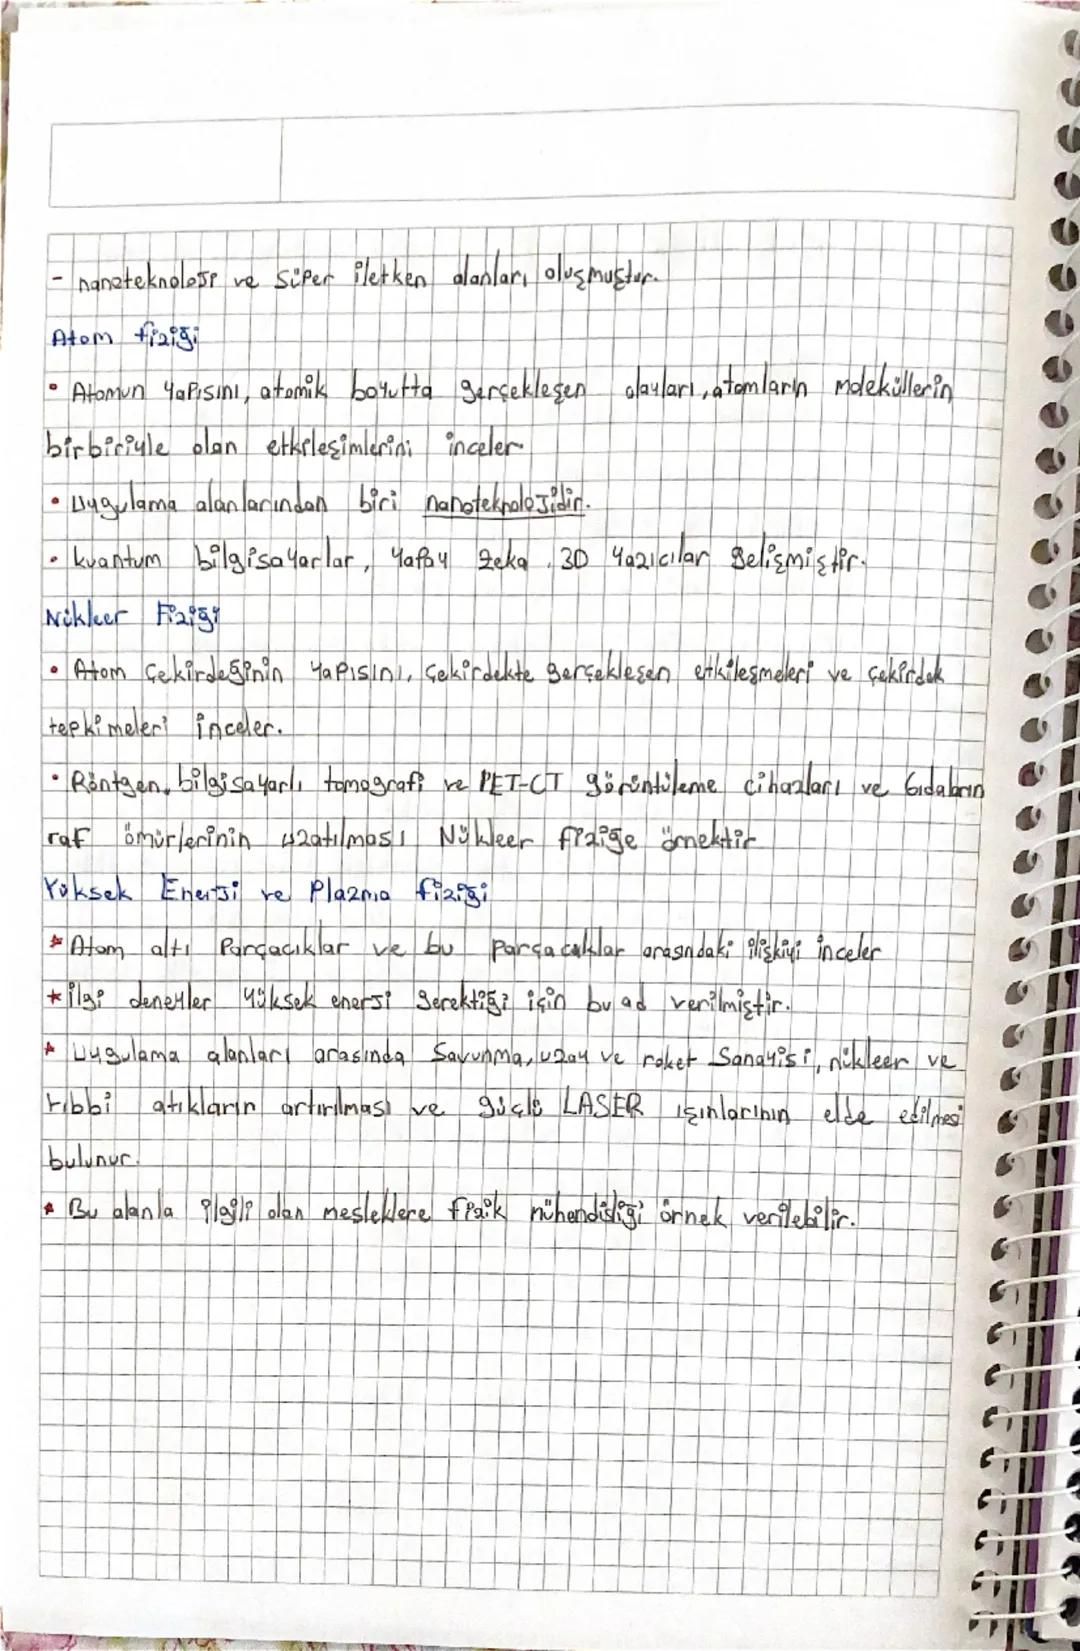 - nanoteknoloji ve Süper iletken alanları oluşmuştur.
Atom fiziği
• Atomun yapısını, atomik boyutta gerçekleşen olayları, atomların moleküllerin
birbiriyle olan etkileşimlerini inceler
• Uygulama alanlarından biri nanoteknolojidir.
• kuantum bilgisayarlar, yapay zeka, 3D yazıcılar gelişmiştir.
Nükleer Fiziği
• Atom çekirdeğinin yapısını, çekirdekte gerçekleşen etkileşmeleri ve çekirdek
tepkimeleri inceler.
• Röntgen, bilgisayarlı tomografi ve PET-CT görüntüleme cihazları ve Gıdaların
raf ömürlerinin uzatılması Nükleer fiziğe örnektir
Yüksek Enerji ve Plazma fiziği
* Atom altı Parçacıklar ve bu parçacıklar arasındaki ilişkiyi inceler
* ilgi deneyler yüksek enerji gerektiği için bu ad verilmiştir.
* Uygulama alanları arasında Savunma, uzay ve roket Sanayisi, nükleer ve
tıbbi atıkların artırılması ve güçlü LASER ışınlarının elde edilmesi
bulunur.
* Bu alanla ilgili olan mesleklere fizik mühendisliği örnek verilebilir.